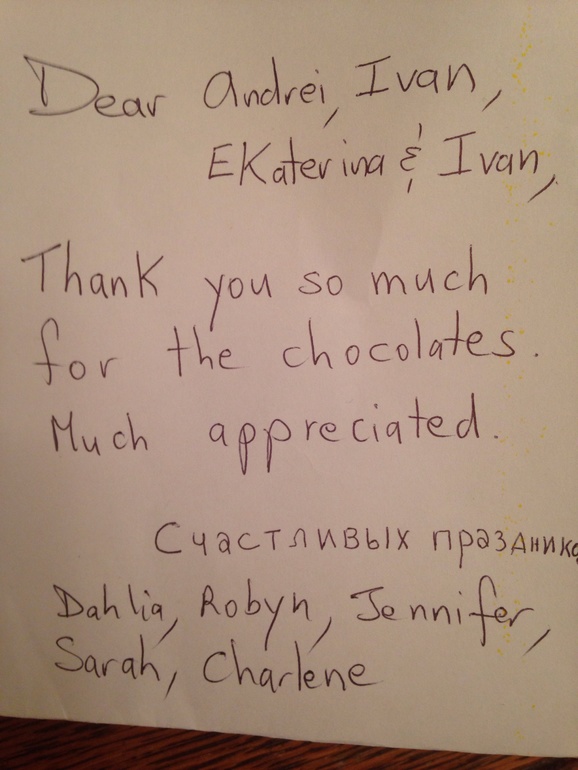 Dear Andrei, Ivan,
EKaterina & Ivan,
Thank you so much
for the chocolates.
Much appreciated.
Счастливых праздника
Dahlia, Robyn, Jennifer,
Sarah, Charlene